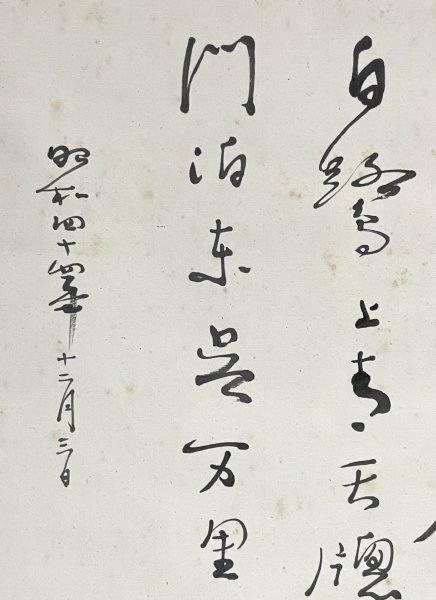 白鷺上青天牕
門泊東吳万里
昭和四十四年十二月三日